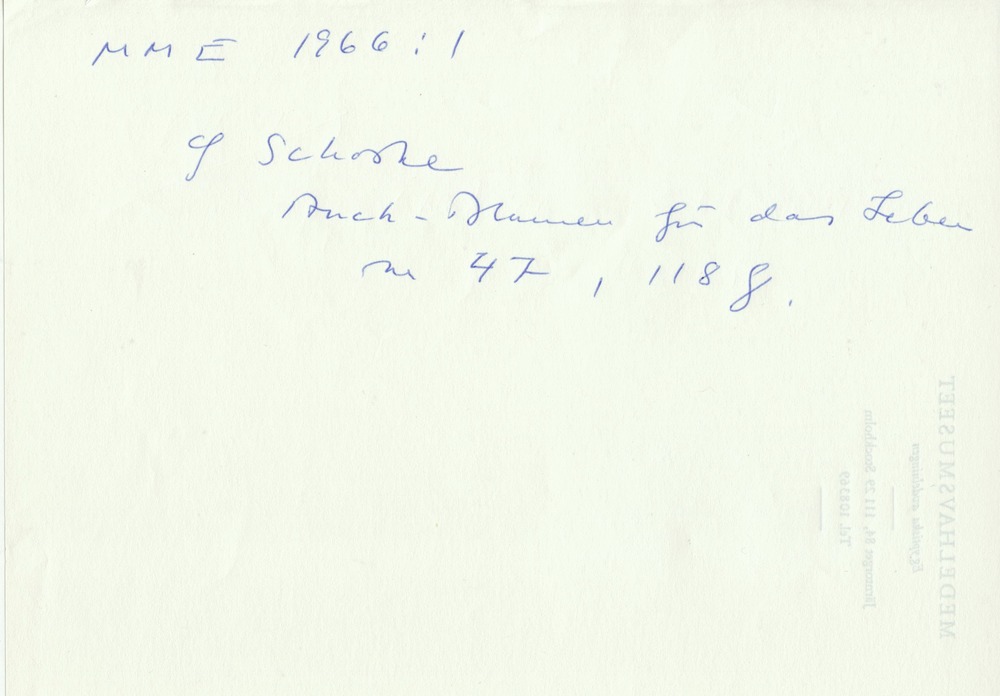 MME 1966:1
cf Schoske
Anch - Blumen für das Leben
nr 47, 118 f.
MEDELHAVSMUSEET
Egyptiska avdelningen
Järntorget 84, 111 29 Stockholm
Tel. 108369